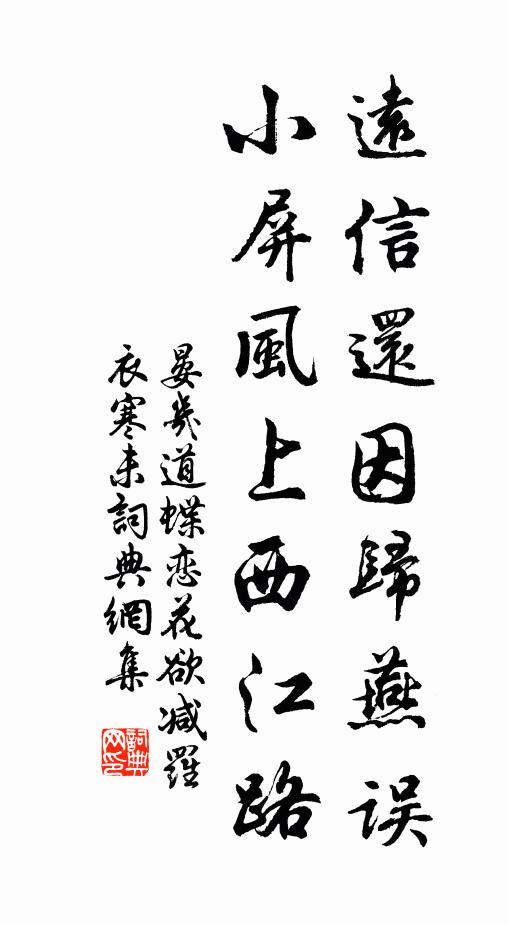 遠信還因歸燕误
小屏風上西江路
晏幾道蝶恋花欲减羅
衣寒未詞典網集
詞典网印